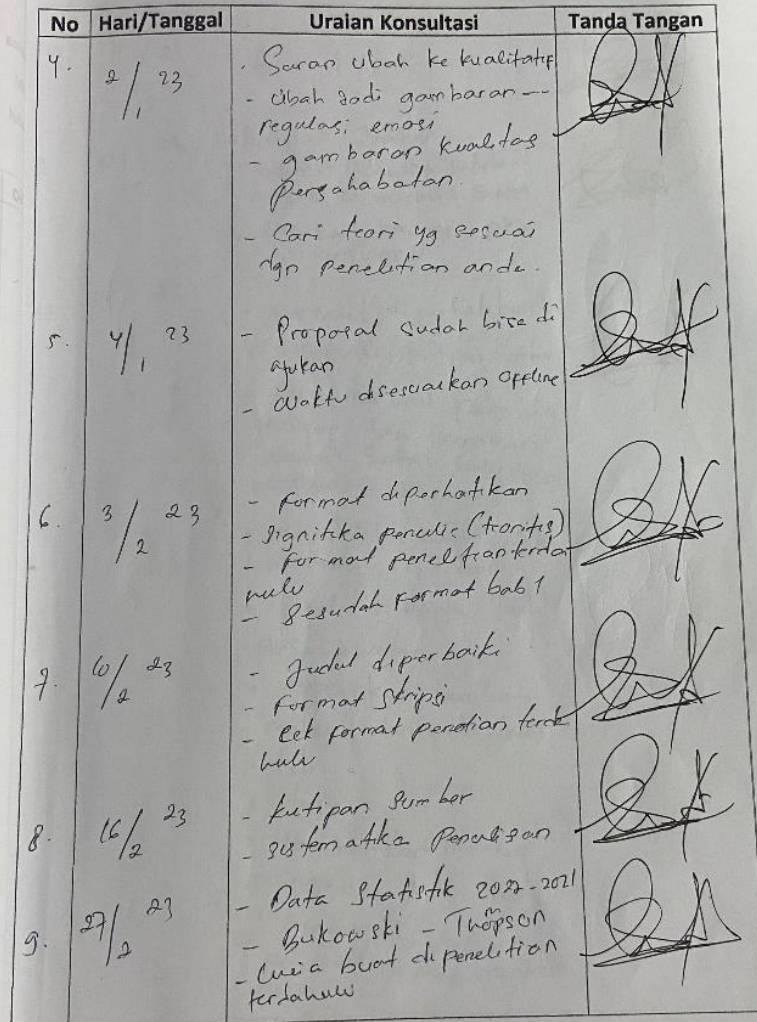 No Hari/Tanggal Uraian Konsultasi Tanda Tangan
4. 2/1 23 - Saran ubah ke kualitatif
- Ubah jadi gambaran --
regulasi emosi
- gambaran kualitas
persahabatan.
- Cari teori yg sesuai
dgn penelitian anda.
5. 4/1 23 - Proposal sudah bisa di
ajukan
- Waktu disesuaikan offline
6. 3/2 23 - Format diperhatikan
- penulis (teoritis)
- Format penelitian terda
hulu
- Sesudah format bab 1
7. 10/2 23 - Judul diperbaiki
- Format Skripsi
- Cek format penetian terda
hulu
8. 16/2 23 - Kutipan Sumber
- Sistematika Penulisan
9. 27/2 23 - Data Statistik 2022-2021
- Bukowski - Thompson
- buat di penelitian
terdahulu